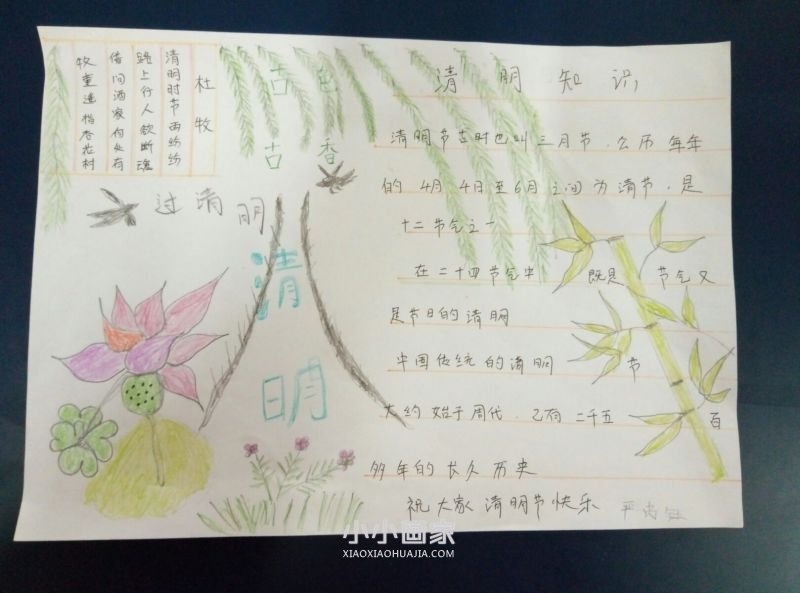 杜牧
清明时节雨纷纷
路上行人欲断魂
借问酒家何处有
牧童遥指杏花村
古色
古香
过清明
清明
清明知识
清明节古时也叫三月节,公历每年
的4月4日至6月之间为清节,是
十二节气之一
在二十四节气中 既是 节气又
是节日的清明
中国传统的清明 节
大约始于周代.已有二千五 百
多年的长久历来
祝大家清明节快乐
小小画家
XIAOXIAOHUAJIA.COM